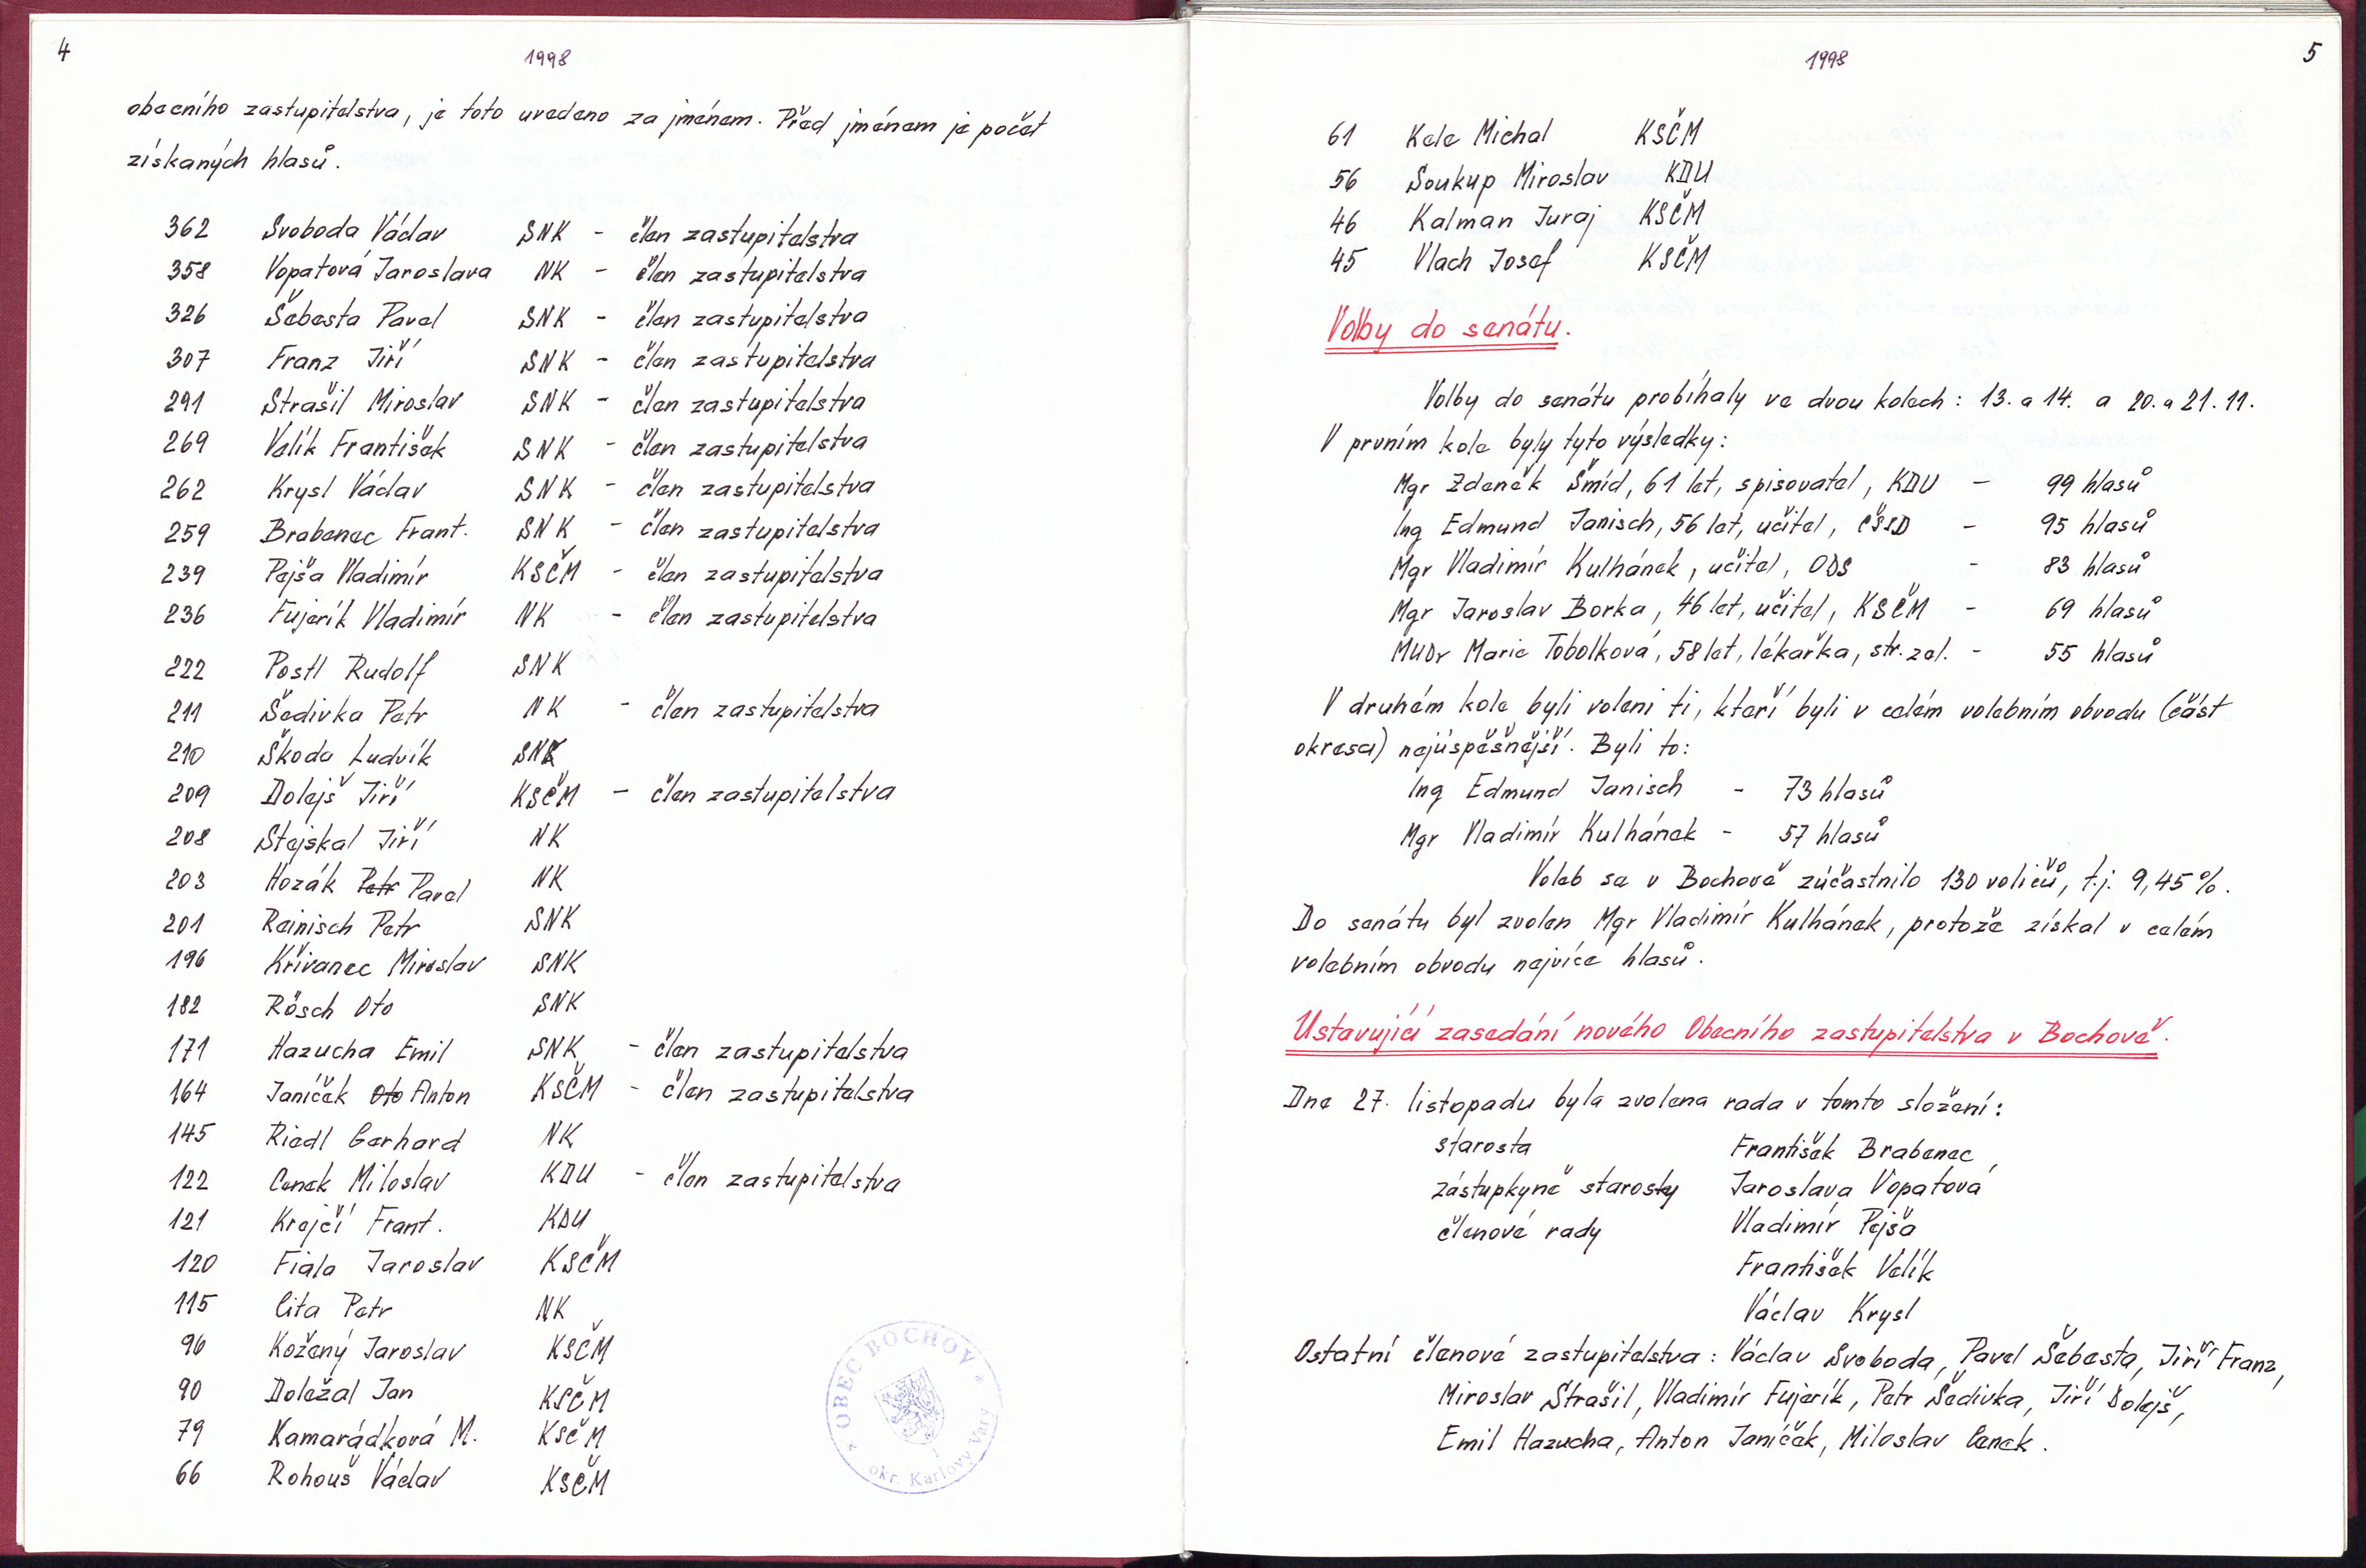 4
1998
obecního zastupitelstva, je toto uvedeno za jménem. Před jménem je počet
získaných hlasů.
362 Svoboda Václav SNK - člen zastupitelstva
358 Vopatová Jaroslava NK - člen zastupitelstva
326 Šebesta Pavel SNK - člen zastupitelstva
307 Franz Jiří SNK - člen zastupitelstva
291 Strašil Miroslav SNK - člen zastupitelstva
269 Velík František SNK - člen zastupitelstva
262 Krysl Václav SNK - člen zastupitelstva
259 Brabenec Frant. SNK - člen zastupitelstva
239 Pejša Vladimír KSČM - člen zastupitelstva
236 Fujerík Vladimír NK - člen zastupitelstva
222 Postl Rudolf SNK
211 Šedivka Petr NK - člen zastupitelstva
210 Škoda Ludvík SNK
209 Dolejš Jiří KSČM - člen zastupitelstva
208 Stejskal Jiří NK
203 Hozák Petr Pavel NK
201 Reinisch Petr SNK
196 Křivanec Miroslav SNK
182 Rösch Oto SNK
171 Hazucha Emil SNK - člen zastupitelstva
164 Janíček Oto Anton KSČM - člen zastupitelstva
145 Riedl Gerhard NK
122 Cenek Miloslav KDU - člen zastupitelstva
121 Krejčí Frant. KDU
120 Fiala Jaroslav KSČM
115 Cita Petr NK
96 Kožený Jaroslav KSČM
90 Doležal Jan KSČM
79 Kamarádková M. KSČM
66 Rohouš Václav KSČM
* OBEC BOCHOV *
1
okr. Karlovy Vary
1998
5
61 Kele Michal KSČM
56 Soukup Miroslav KDU
46 Kalman Juraj KSČM
45 Vlach Josef KSČM
Volby do senátu.
Volby do senátu probíhaly ve dvou kolech: 13. a 14. a 20. a 21. 11.
V prvním kole byly tyto výsledky:
Mgr Zdeněk Šmíd, 61 let, spisovatel, KDU - 99 hlasů
Ing Edmund Janisch, 56 let, učitel, ČSSD - 95 hlasů
Mgr Vladimír Kulhánek, učitel, ODS - 83 hlasů
Mgr Jaroslav Borka, 46 let, učitel, KSČM - 69 hlasů
MUDr Marie Tobolková, 58 let, lékařka, str. zel. - 55 hlasů
V druhém kole byli voleni ti, kteří byli v celém volebním obvodu (část
okresu) nejúspěšnější. Byli to:
Ing Edmund Janisch - 73 hlasů
Mgr Vladimír Kulhánek - 57 hlasů
Voleb se v Bochově zúčastnilo 130 voličů, t.j. 9,45%.
Do senátu byl zvolen Mgr Vladimír Kulhánek, protože získal v celém
volebním obvodu nejvíce hlasů.
Ustavující zasedání nového Obecního zastupitelstva v Bochově.
Dne 27. listopadu byla zvolena rada v tomto složení:
starosta František Brabenec
zástupkyně starosty Jaroslava Vopatová
členové rady Vladimír Pejša
František Velík
Václav Krysl
Ostatní členové zastupitelstva: Václav Svoboda, Pavel Šebesta, Jiří Franz,
Miroslav Strašil, Vladimír Fujerík, Petr Šedivka, Jiří Dolejš,
Emil Hazucha, Anton Janíček, Miloslav Cenek.